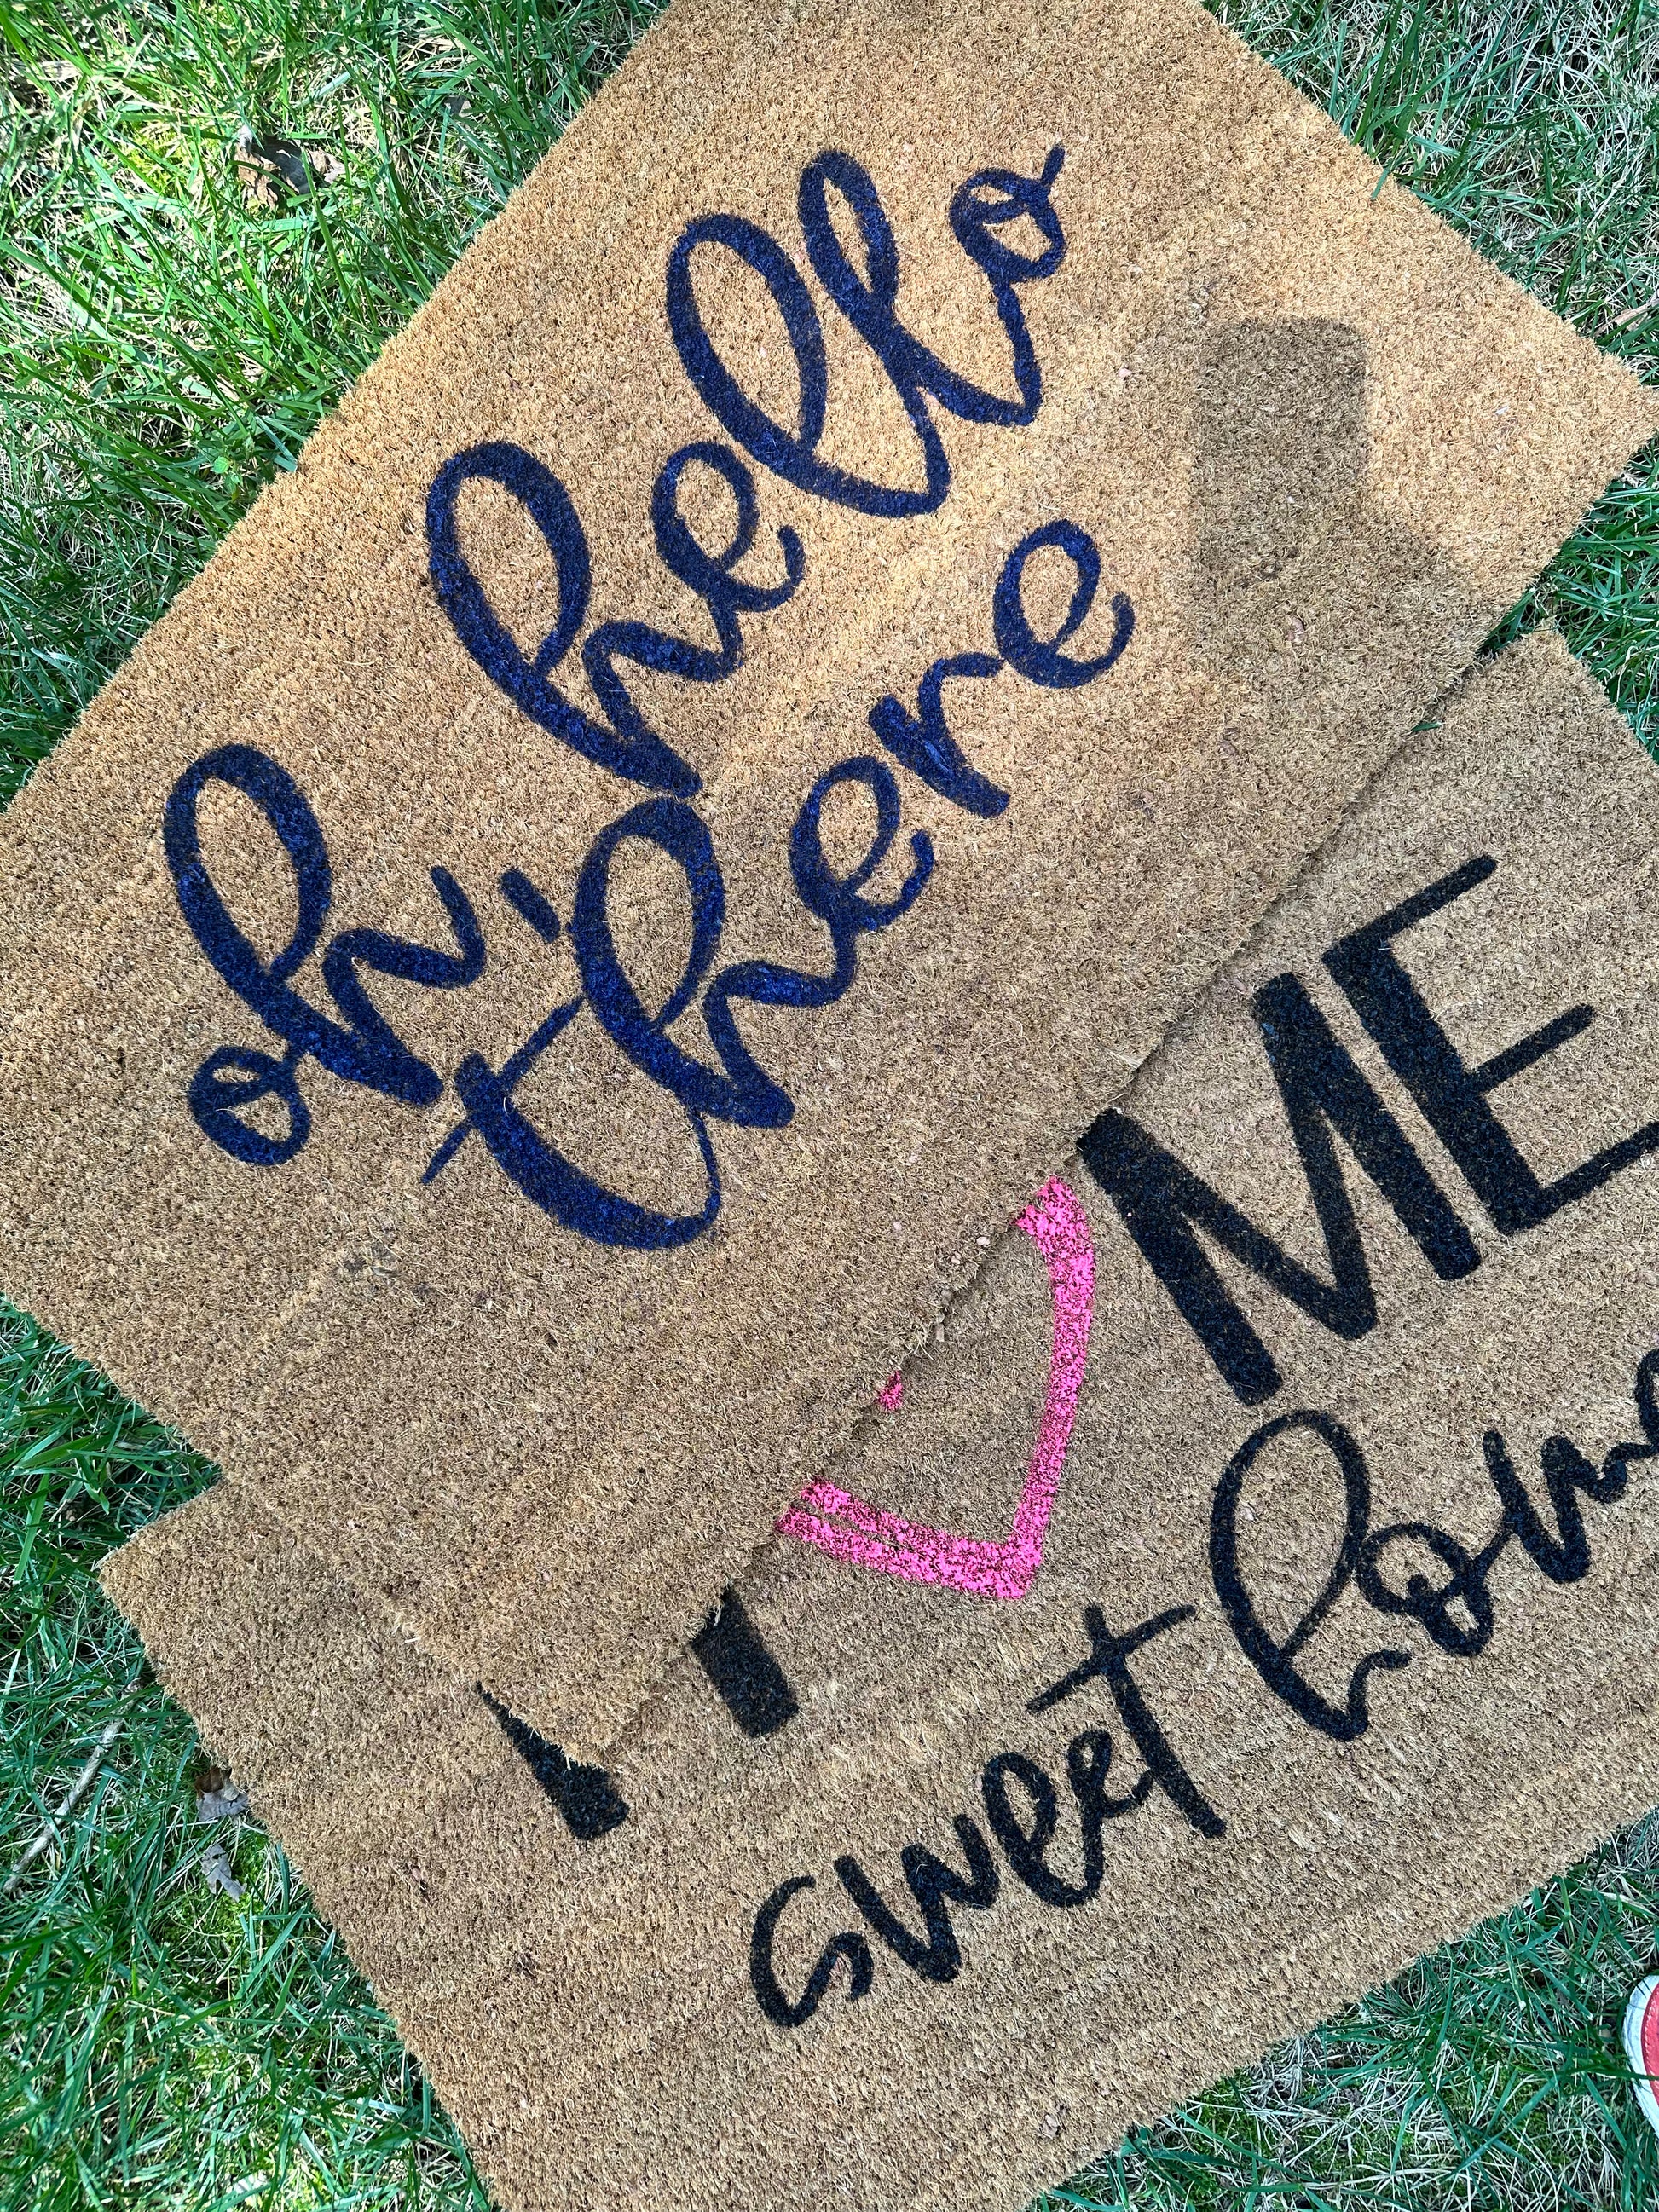 oh, hello
there
ME
sweet